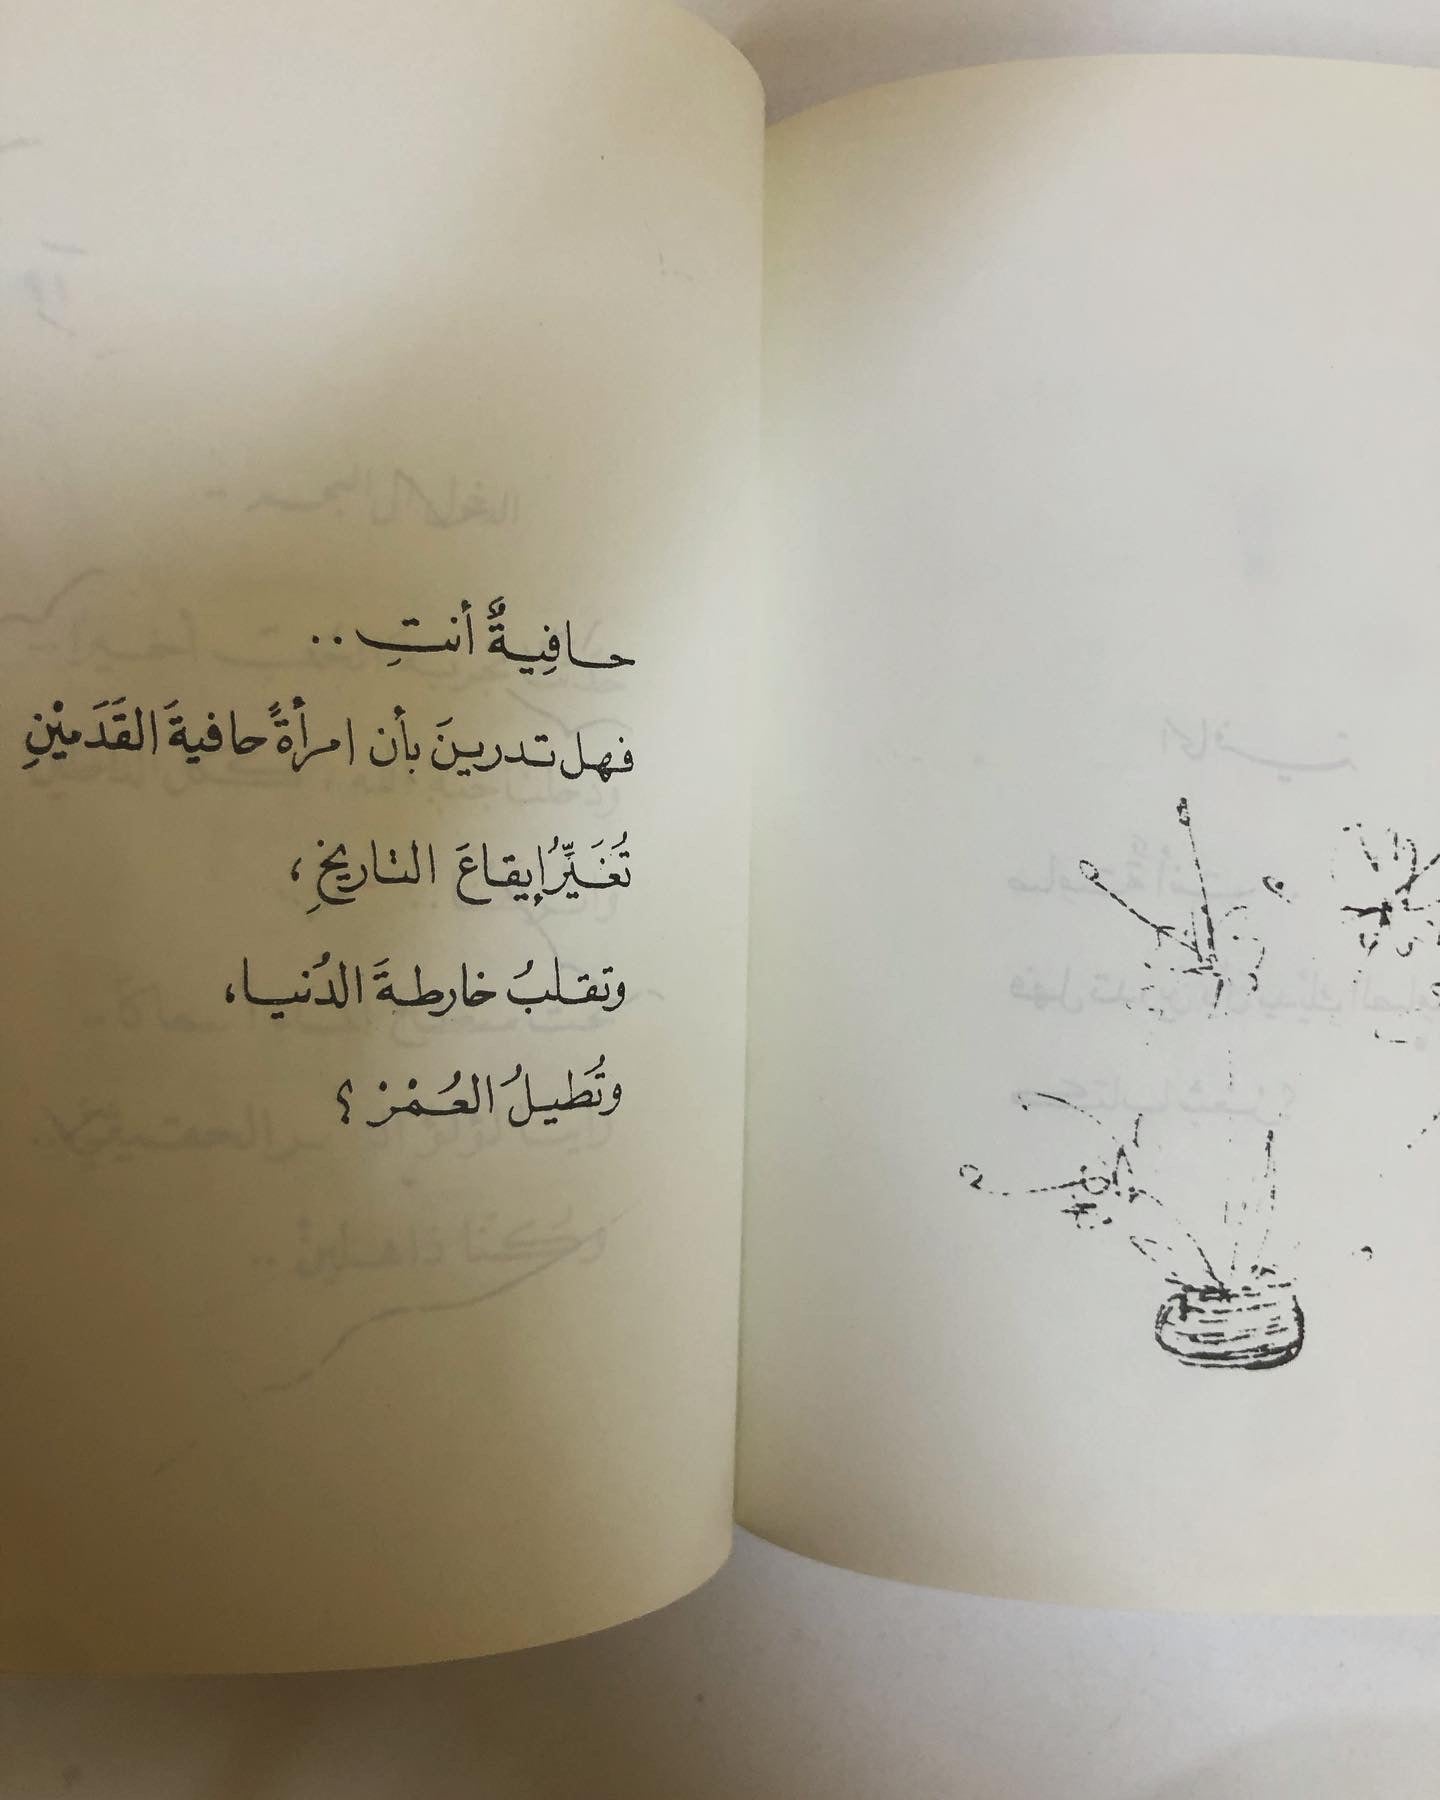 حافِيةٌ أنتِ ..
فهل تدرينَ بأن امرأةً حافيةَ القَدَميْنِ
تُغَيِّرُ إيقاعَ التاريخِ ،
وتقلبُ خارطةَ الدُنيا،
وتُطيلُ العُمْرْ ؟